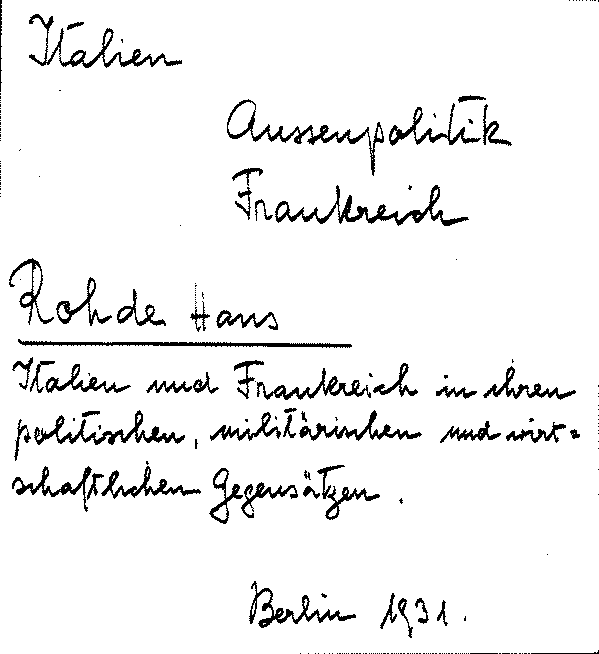 Italien
Aussenpolitik
Frankreich
Rohde Hans
Italien und Frankreich in ihren
politischen, militärischen und wirt=
schaftlichen Gegensätzen.
Berlin 1931.